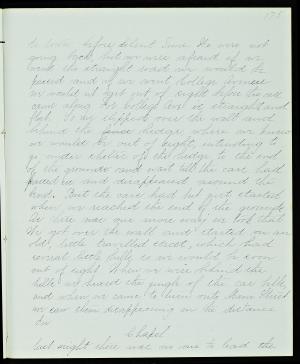 175
to town before Silent Time. We were not
going back, but we were afraid if we
went the straight road we would be
passed and if we went College Avenue
we would not get out of sight before the car
came along for College Ave is straight and
flat. So we slipped over the wall and
behind the hedge where we knew
we would be out of sight, intending to
go under shelter of the hedge to the end
of the grounds and wait till the cars had
passed us and disappeared around the
bend. But the cars had but just started
when we reached the end of the grounds
so there was one more way we took that.
We got over the wall and started on an
old, little travelled street, which had
several little hills so we would be soon
out of sight. When we were behind the
hills we heard the jingle of the car bells
and when we came to turn onto Main Street
we saw them disappearing in the distance
In
Chapel
last night there was no one to lead the